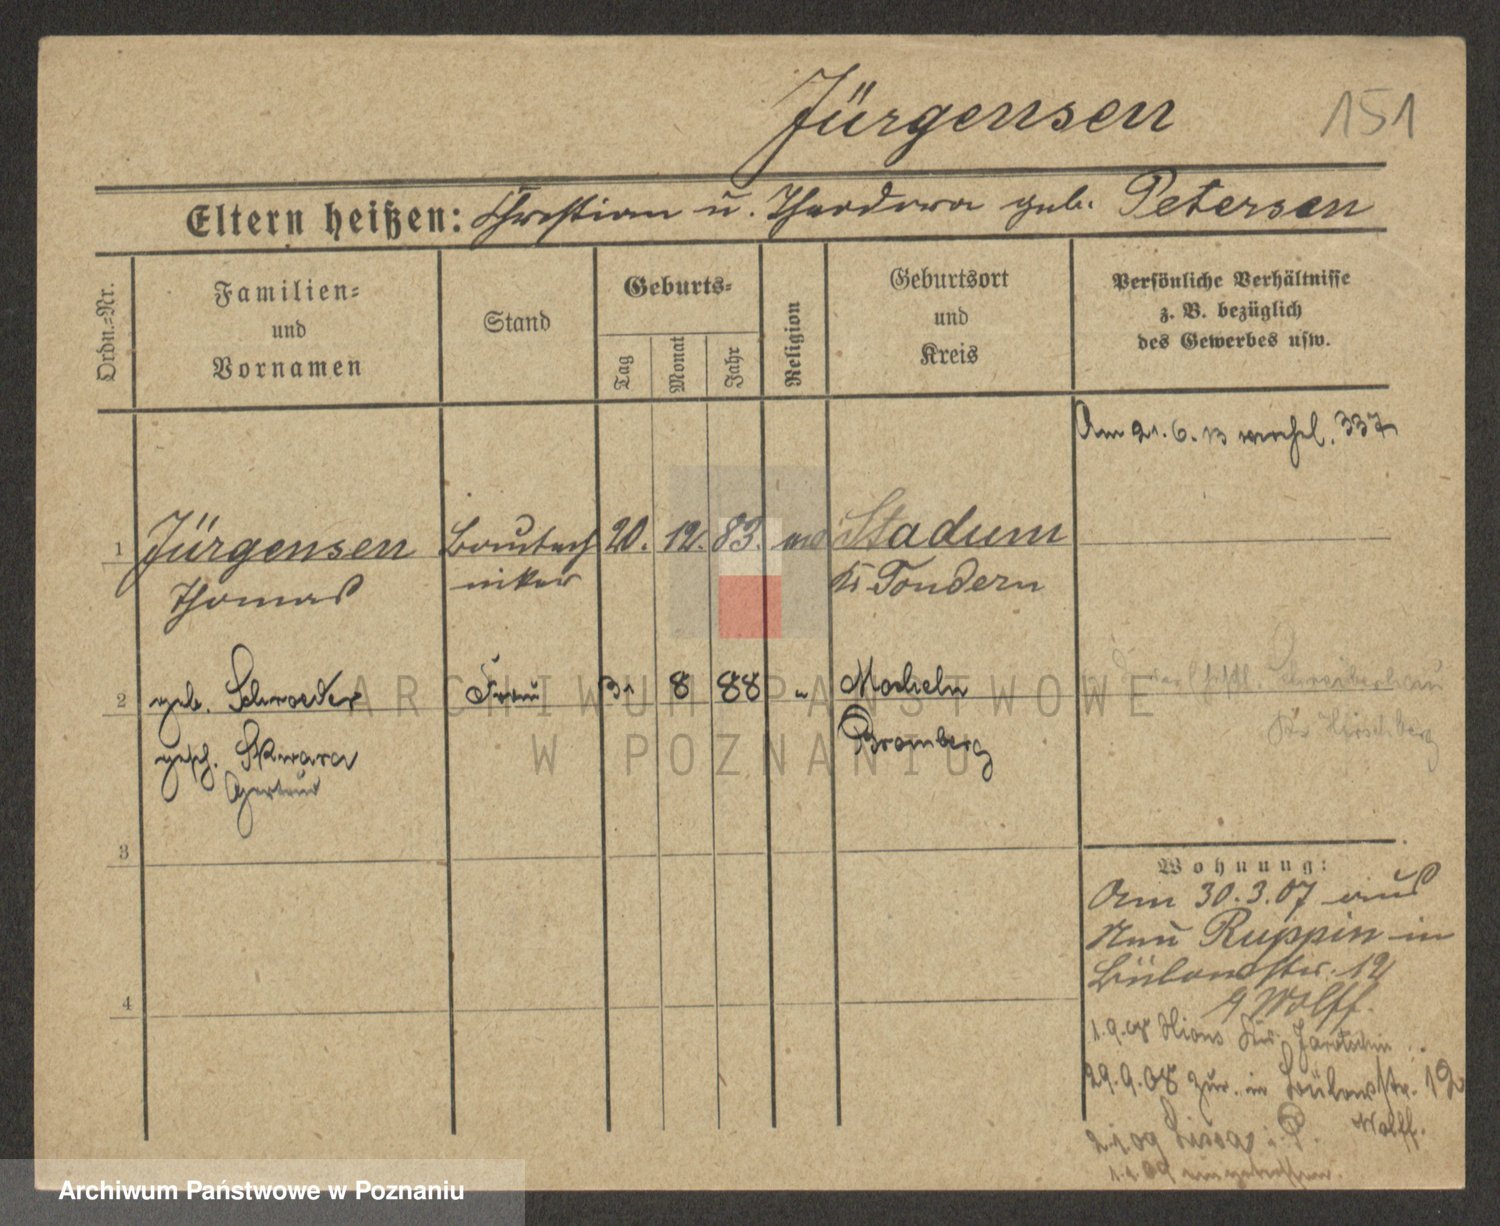 Jürgensen
151
Eltern heißen: Christian u. Theodora geb. Petersen
Ordn.=Nr.
Familien=
und
Vornamen
Stand
Geburts=
Tag
Monat
Jahr
Religion
Geburtsort
und
Kreis
Persönliche Verhältnisse
z. B. bezüglich
des Gewerbes usw.
Am 21.6.13 337
1 Jürgensen Bautech 20. 12. 83. Stadum
Thomas niker Kr Tondern
2 geb. Schroeder Frau 31 8 88 " Mocheln
gesch. Skwara Bromberg
Gertrud
Schreiberhau
Kr. Hirschberg
3
4
Wohnung:
Am 30.3.07 aus
Neu Ruppin in
Bülowstr. 12
b Wolff.
1.9.08 Kr. Jarotschin
29.9.08 zur. in Bülowstr. 12
Wolff.
2.1.09 Lissa i. P.
ARCHIWUM PAŃSTWOWE
W POZNANIU
Archiwum Państwowe w Poznaniu